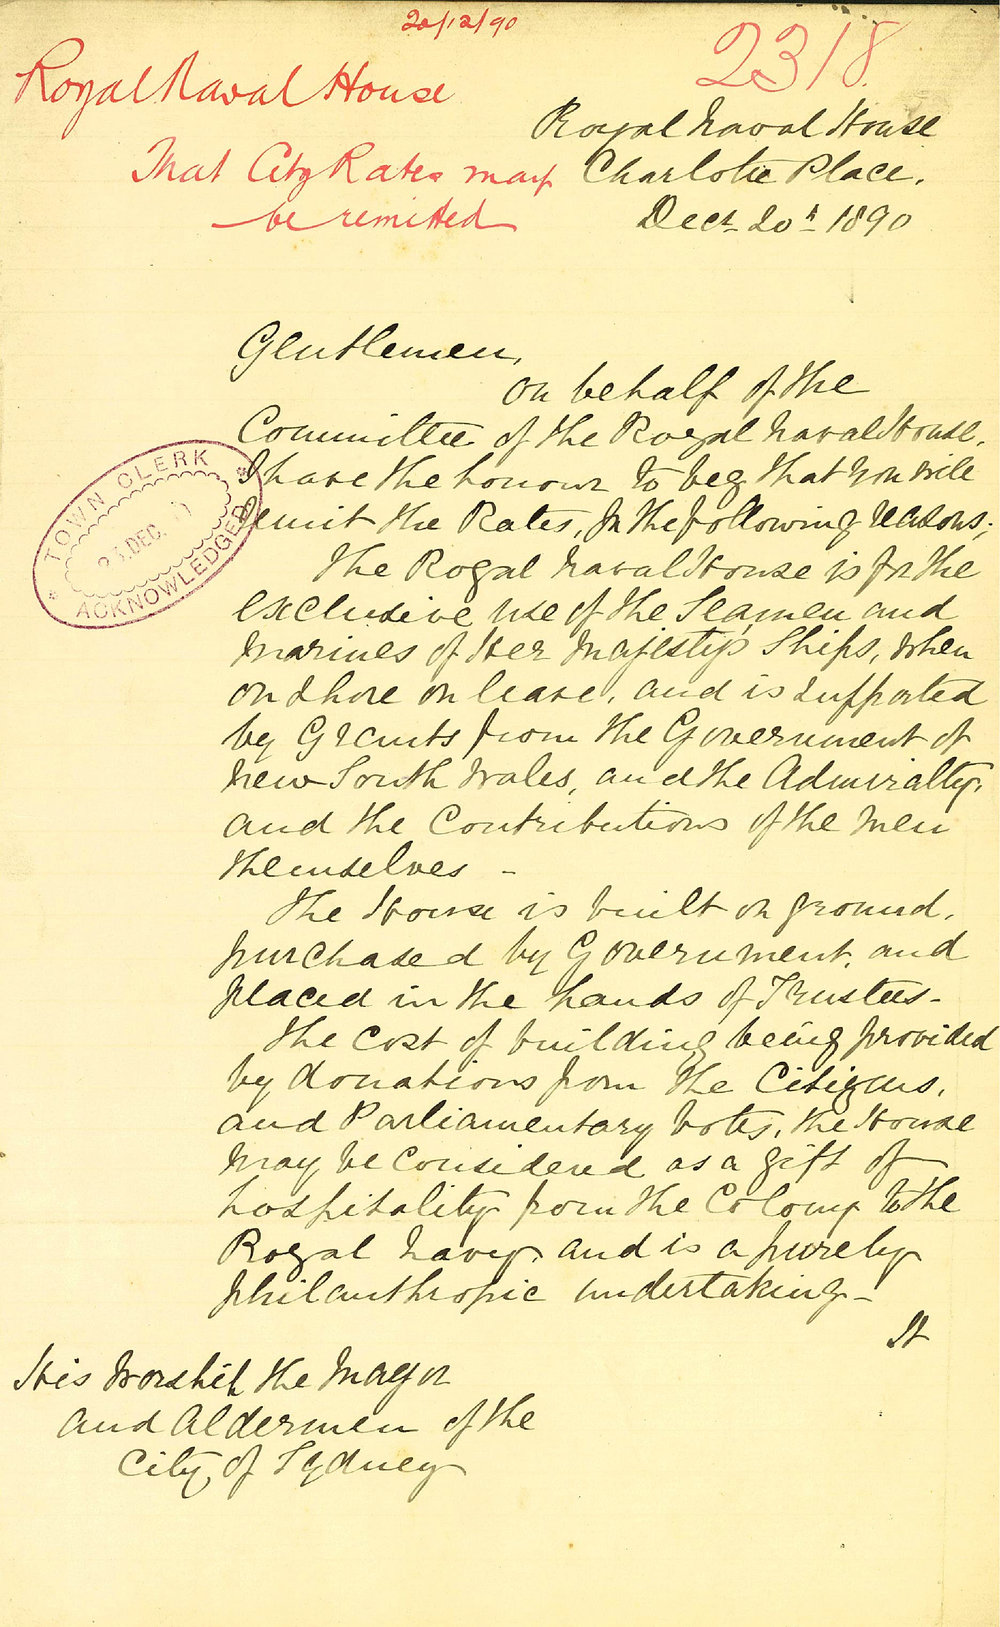 20/12/90
2318
Royal Naval House
That City Rates may
be remitted
Royal Naval House
Charlotte Place.
Decr 20th 1890
Gentlemen,
On behalf of the
Committee of the Royal Naval House,
I have the honour to beg that you will
remit the Rates, for the following reasons;
The Royal Naval House is for the
exclusive use of the Seamen and
Marines of Her Majesty's Ships, when
on shore on leave, and is supported
by Grants from the Government of
New South Wales, and the Admiralty,
and the Contributions of the men
themselves -
The House is built on ground,
purchased by Government, and
placed in the hands of Trustees -
The Cost of building being provided
by donations from the Citizens,
and Parliamentary Votes, the House
may be considered as a gift of
hospitality from the Colony to the
Royal Navy, and is a purely
philanthropic undertaking -
It
His Worship the Mayor
and Aldermen of the
City of Sydney
TOWN CLERK
DEC.
ACKNOWLEDGED